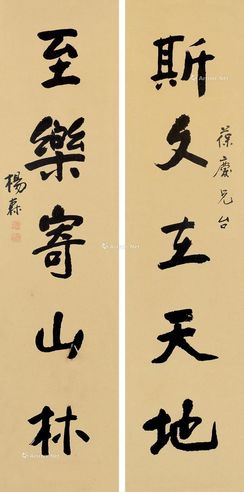 斯文在天地
葆慶兄台
至樂寄山林
楊森